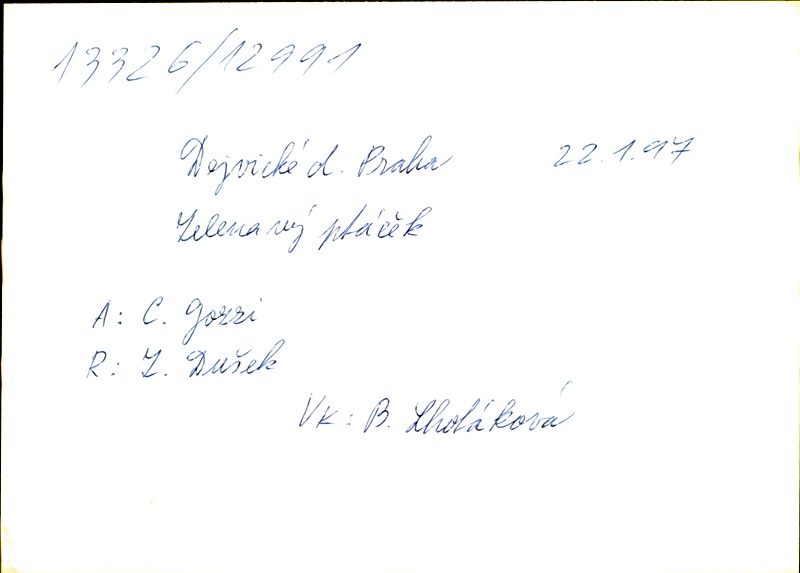 13326/12991
Dejvické d. Praha 22.1.97
Zelenavý ptáček
A: C. Gozzi
R: Z. Dušek
Vk: B. Lhotáková